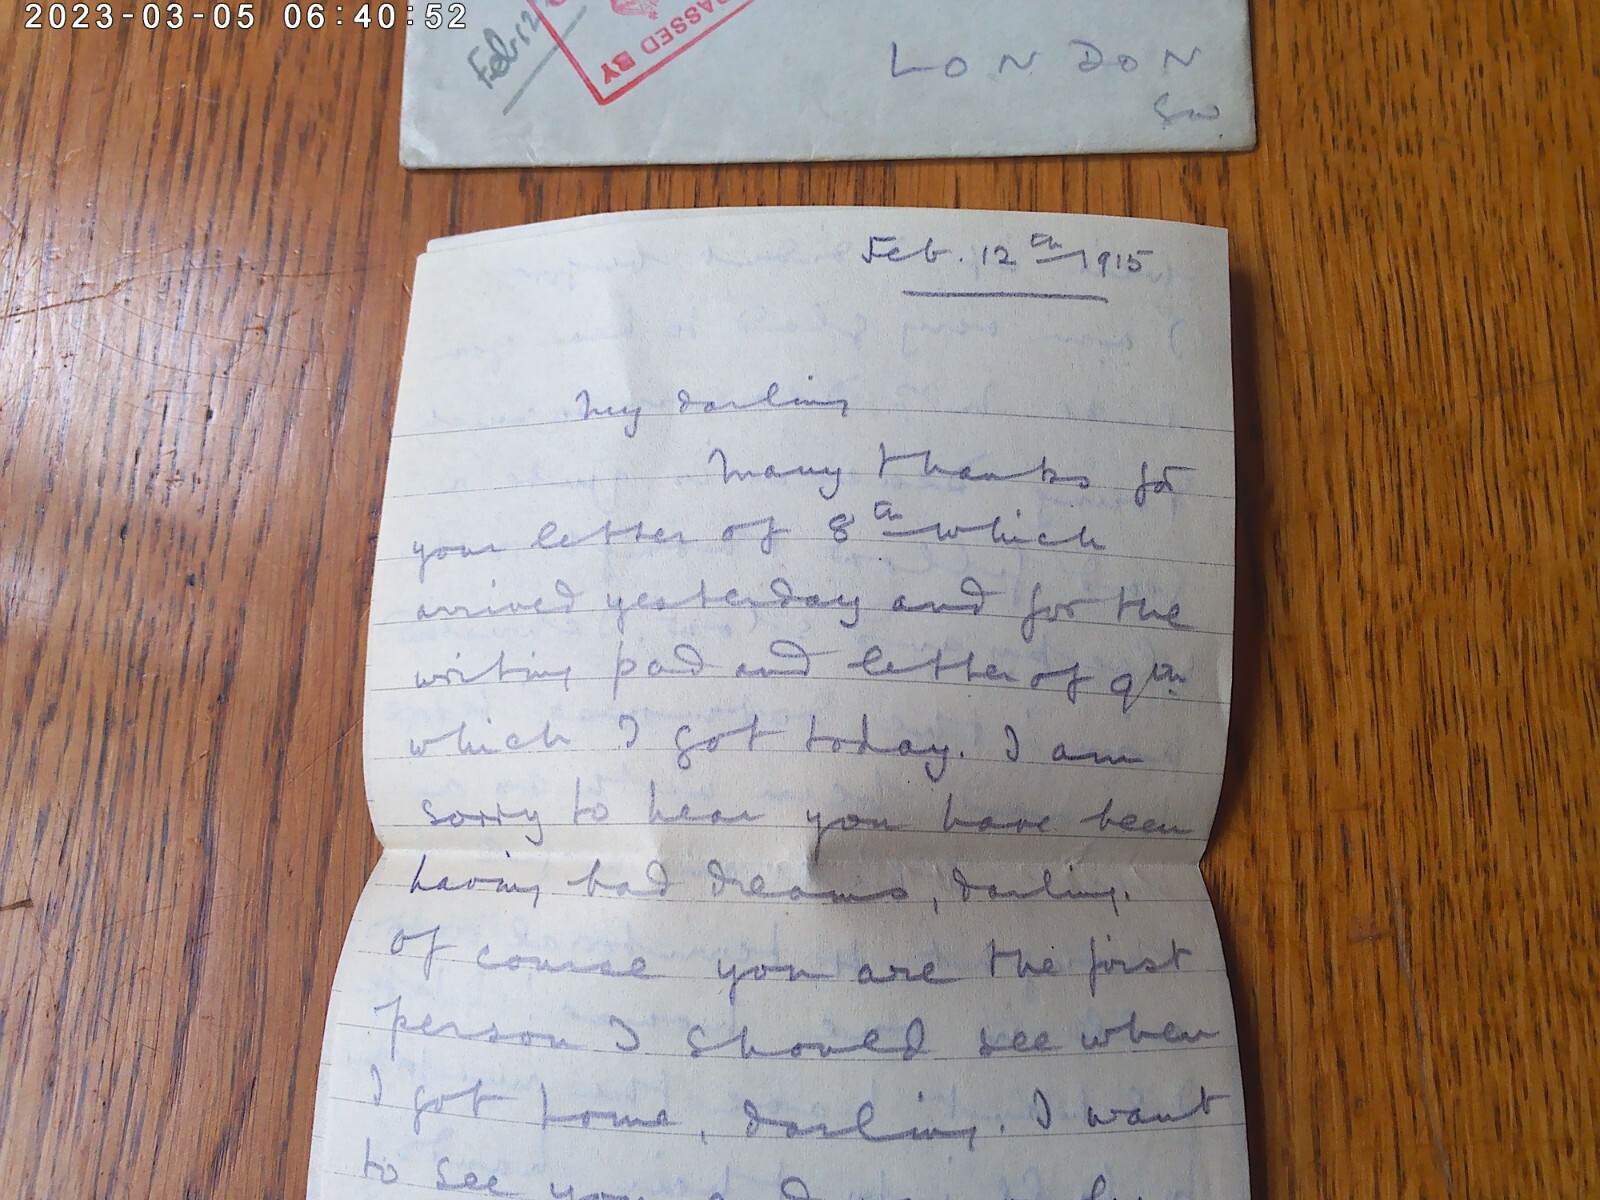 2023-03-05 06:40:52
Feb 12
PASSED BY
LONDON
SW.
Feb. 12th 1915
My darling
Many thanks for
your letter of 8th which
arrived yesterday and for the
writing pad and letter of 9th
which I got today. I am
sorry to hear you have been
having bad dreams, darling.
Of course you are the first
person I should see when
I got home, darling. I want
to see you